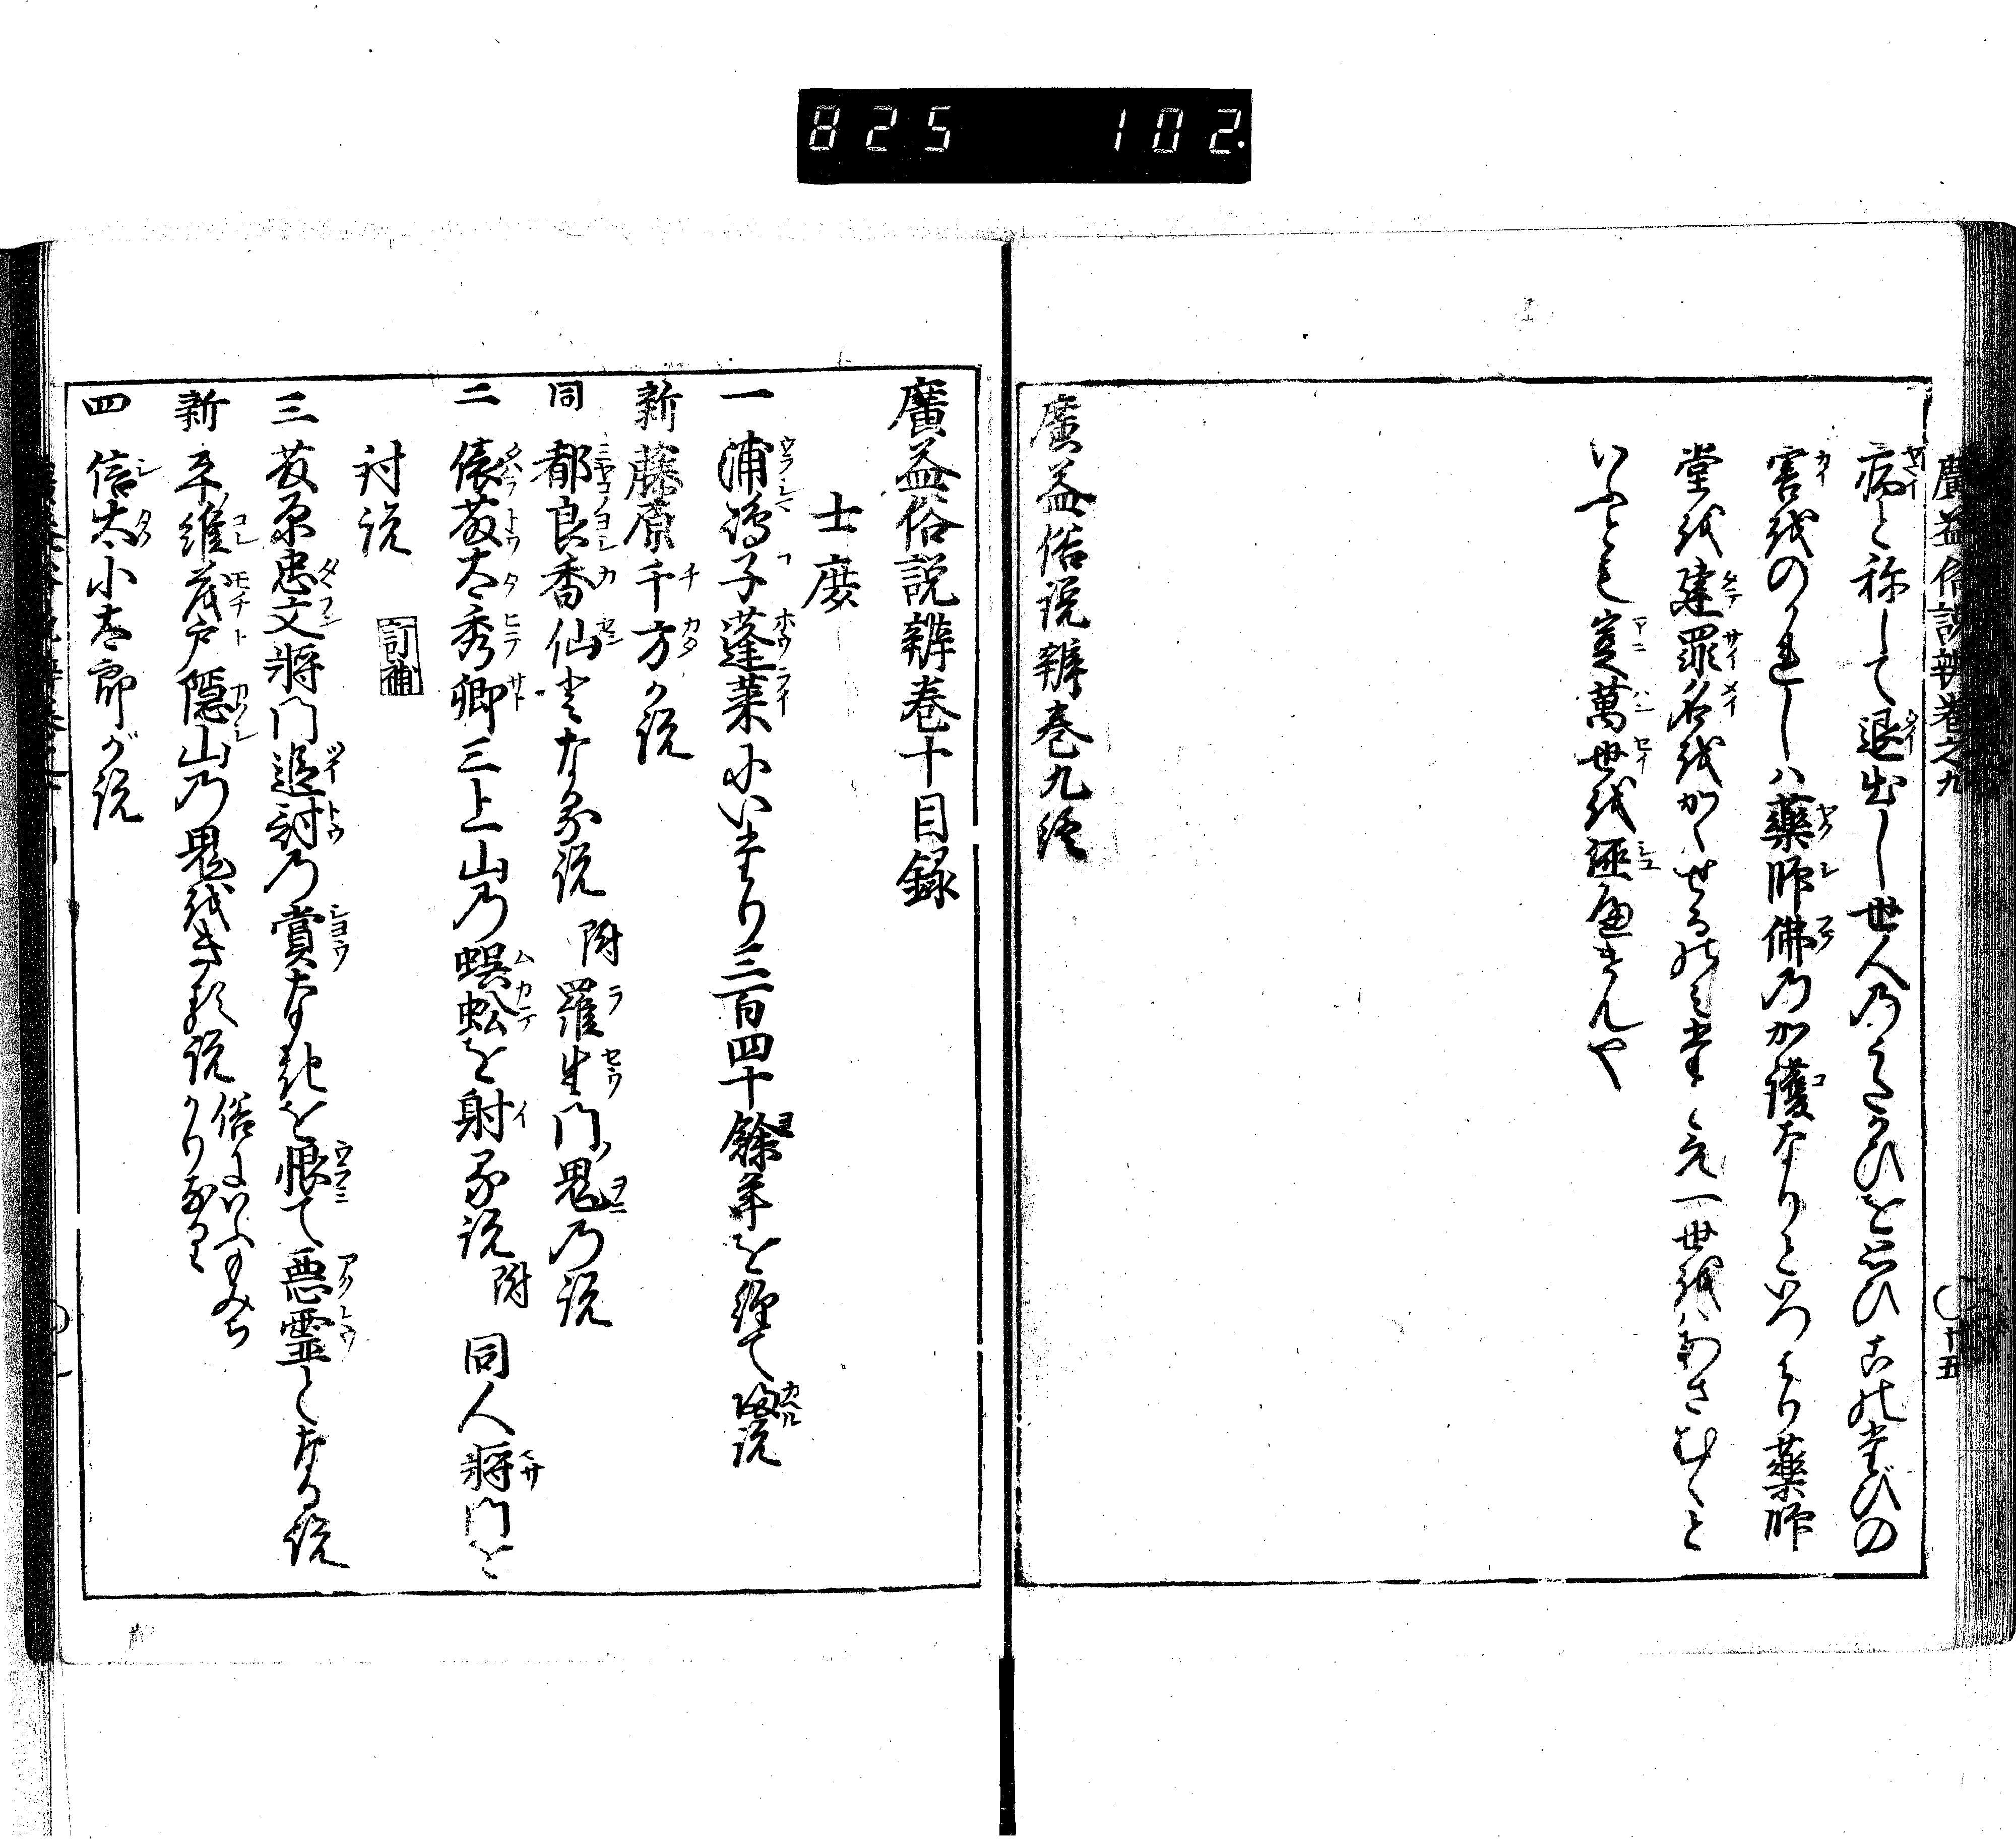 825 102
廣益俗説辨巻之九 十五
病と称して退出し世人のうたがひを思ひ古の堂びの
害をのがれしハ薬師佛の加護なりといつはり薬師
堂を建罪名をかくせるのミ堂く元一世をハあさむくと
いふとも豈萬世を誣へけんや
廣益俗説辨巻九終
廣益俗説辨巻十目録
士庶
一 浦嶋子蓬莱にいたり三百四十餘年を經て歸説
新 藤原千方が説
同 都良香仙となる説 附羅生門鬼の説
二 俵藤太秀郷三上山の蜈蚣を射る説 附 同人將門を
討説 訂補
三 藤原忠文將門追討の賞なきを恨て悪霊となる説
新 平維茂戸隠山の鬼をきる説 俗にいふもみぢかりなり
四 信太小太郎が説